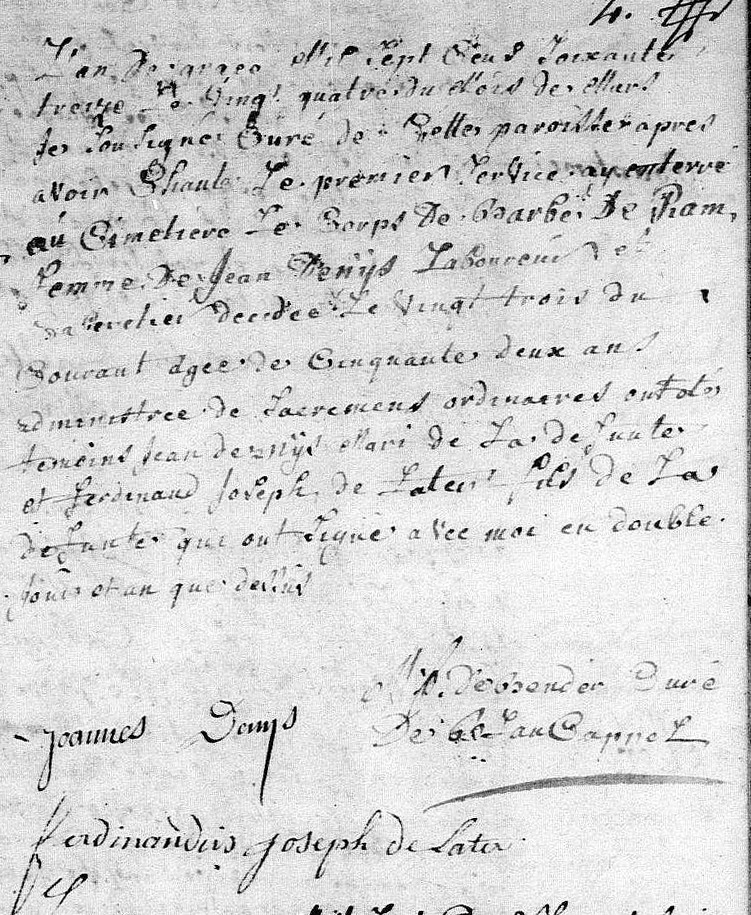 4.
L'an de grace Mil Sept Cens Soixante
treize Le Vingt quatre du Mois de Mars
Je Soussigné Curé de Cette paroisse apres
avoir Chanté Le premier Service ay enterré
au Cimetiere Le Corps De Barbe De Ram,
femme De Jean Denys Laboureur et
decedée Le Vingt trois du
Courant agée de Cinquante deux ans
administrée de Sacremens ordinaires ont eté
temoins Jean denys Mari de La defunte
et ferdinand Joseph de Later fils de La
defunte qui ont Signé avec moi en double
Jour et an que dessus
Curé
De
Joannes Denys
ferdinandus Joseph de Later